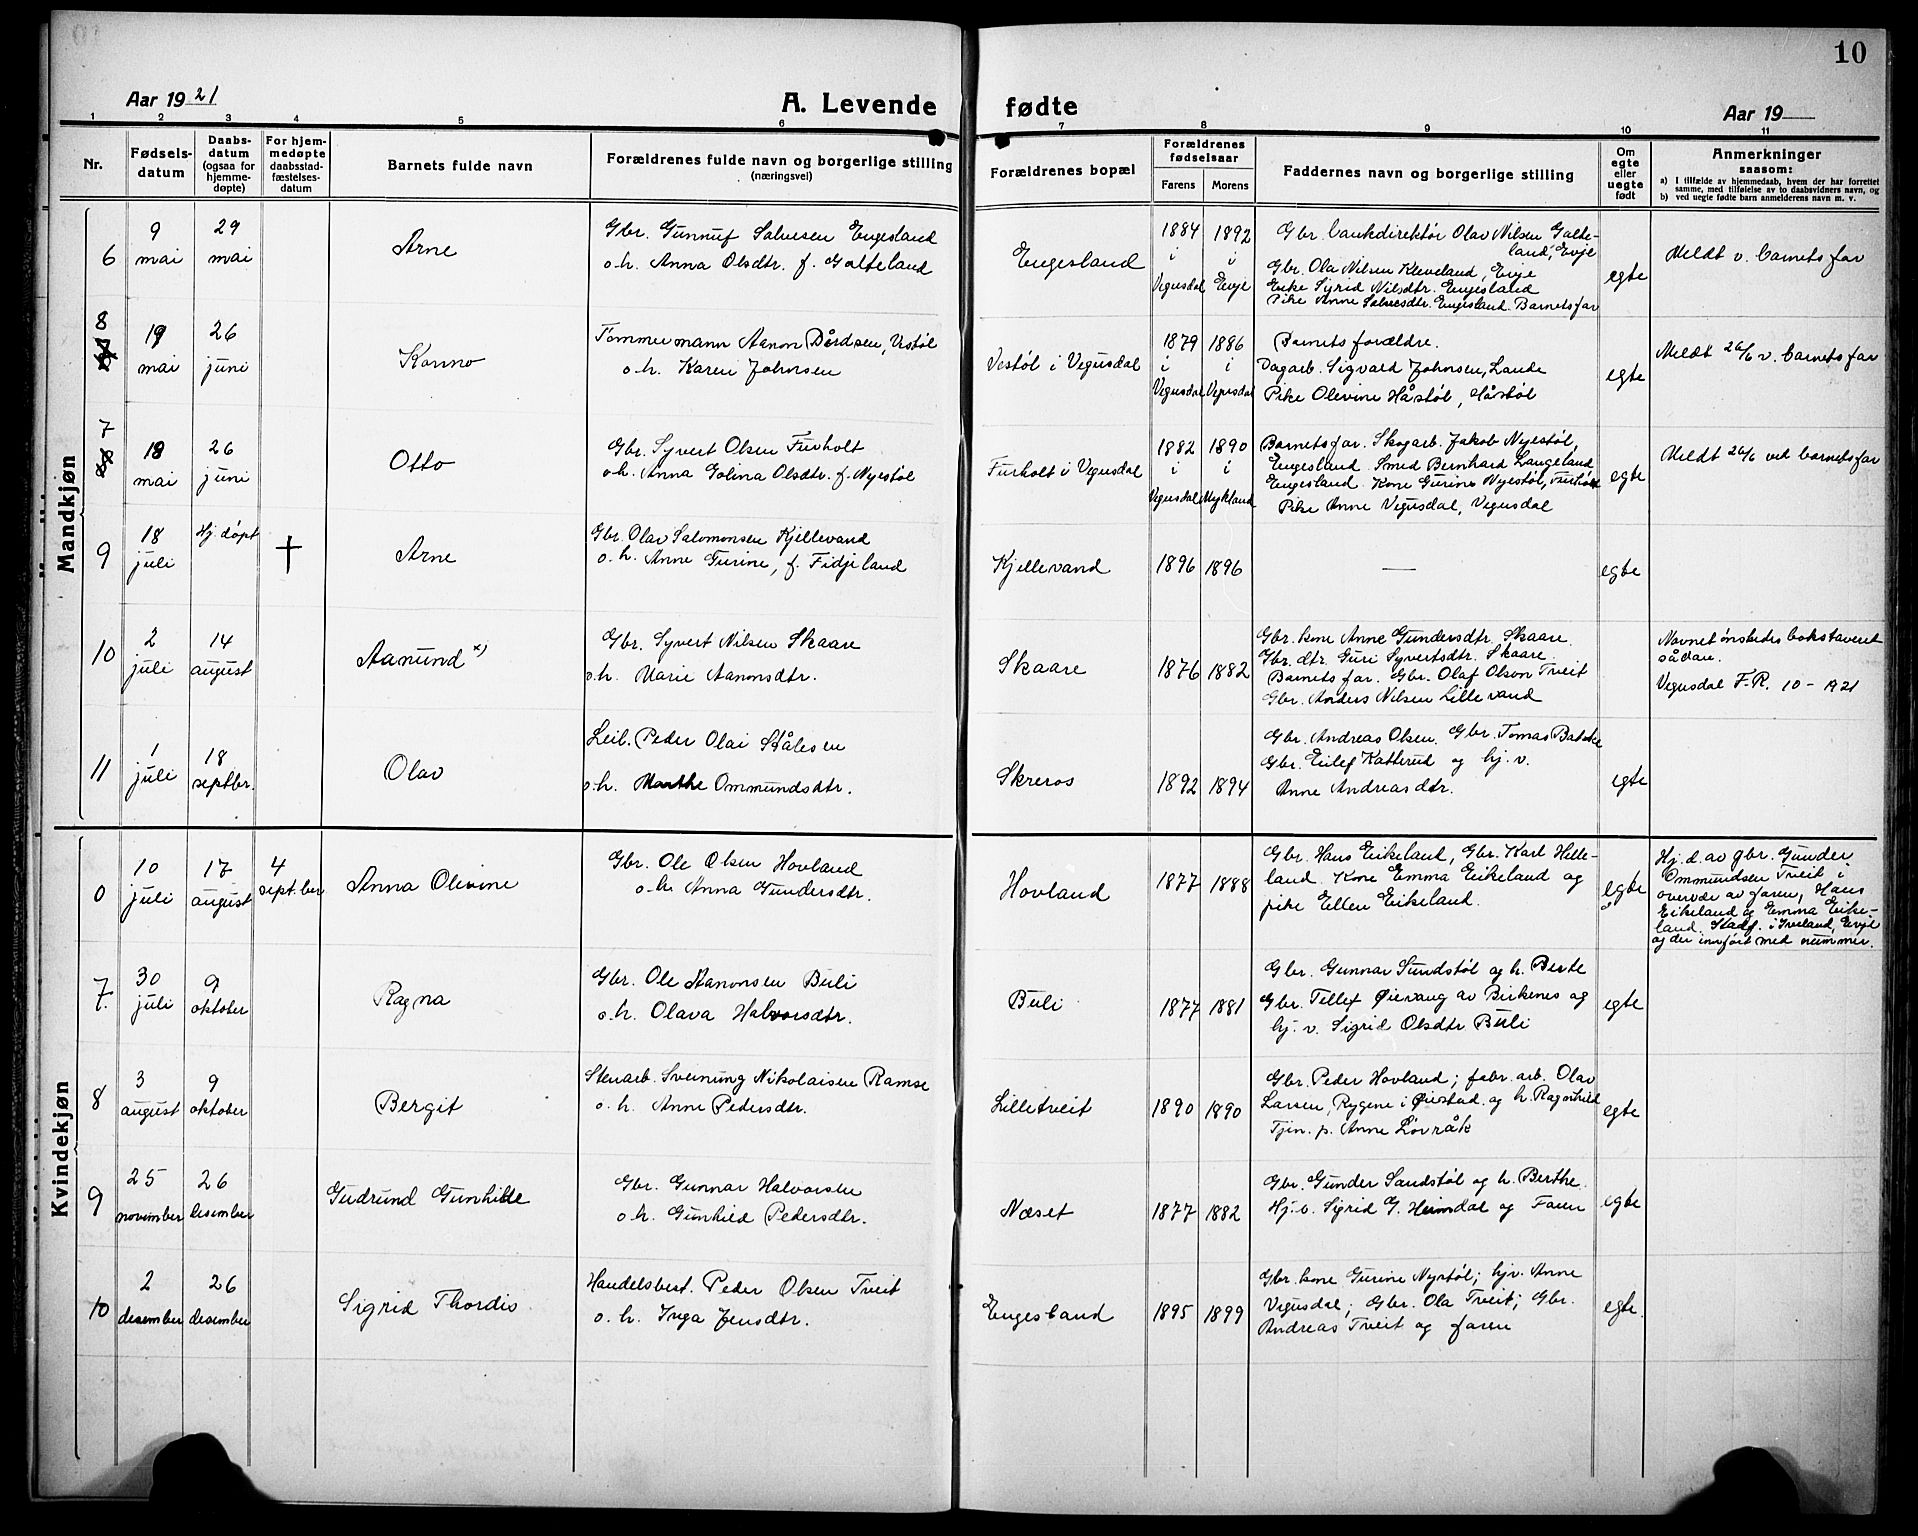 10
Aar 1921
A. Levende fødte
Aar 19
1 2 3 4 5 6 7 8 9 10 11
Nr.
Fødsels-
datum
Daabs-
datum
(ogsaa for
hjemme-
døpte)
For hjem-
medøpte
daabsstad-
fæstelses-
datum
Barnets fulde navn
Forældrenes fulde navn og borgerlige stilling
(næringsvei)
Forældrenes bopæl
Forældrenes
fødselsaar
Farens Morens
Faddernes navn og borgerlige stilling
Om
egte
eller
uegte
født
Anmerkninger
saasom:
a) I tilfælde av hjemmedaab, hvem der har forrettet
samme, med tilføielse av to daabsvidners navn, og
b) ved uegte fødte barn anmelderens navn m. v.
Mandkjøn
6
9
mai
29
mai
Arne
Gbr. Gunnuf Salvesen Engesland
o. h. Anna Olsdtr. f. Galteland
Engesland
1884
i
Vegusdal
1892
i
Evje
Gbr. bankdirektør Olav Nilsen Galte-
land, Evje
Gbr. Ola Nilsen Kleveland, Evje
Enke Sigrid Nilsdtr. Engesland
Pike Anne Salvesdtr. Engesland. Barnets far
egte
Meldt v. barnets far
8
19
mai
26
juni
Konno
Tømmermann Aanon Bårdsen, Vestøl
o. h. Karen Johnsen
Vestøl i Vegusdal
1879
i
Vegusdal
1886
i
Vegusdal
Barnets forældre.
Dagarb. Sigvald Johnsen, Lande
Pike Olevine Håstøl, Håstøl
egte
Meldt 26/6 v. barnets far
7
18
mai
26
juni
Otto
Gbr. Syvert Olsen Furholt
o. h. Anna Golina Olsdtr. f. Nyestøl
Furholt i Vegusdal
1882
i
Vegusdal
1890
i
Mykland
Barnets far. Skogarb. Jakob Nyestøl,
Engesland. Smed Bernhard Langeland
Engesland. Kone Gurine Nyestøl,
Pike Anne Vegusdal, Vegusdal
egte
Meldt 26/6 ved barnets far
9
18
juli
Hj. døpt
†
Arne
Gbr. Olav Salomonsen Kjellevand
o. h. Anne Gurine, f. Fidjeland
Kjellevand
1896 1896
—
egte
10
2
juli
14
august
Aanund x)
Gbr. Syvert Nilsen Skaare
o. h. Marie Aanonsdtr.
Skaare
1876 1882
Gbr. kone Anne Gundersdtr. Skaare.
Gbr. dtr. Guri Syvertsdtr. Skaare.
Barnets far. Gbr. Olaf Olson Tveit
Gbr. Anders Nilsen Lillevand
Navnet ønskedes bokstaveret
sådan.
Vegusdal F.R. 10 - 1921
11
1
juli
18
septbr.
Olav
Leib. Peder Olai Ståлesen
o. h. Marthe Ommundsdtr.
Skreros
1892 1894
Gbr. Andreas Olsen. Gbr. Tomas
Gbr. Eilef Katterud og hj. v.
Anne Andreasdtr.
egte
Kvindekjøn
0
10
juli
17
august
4
sept.ber
Anna Olevine
Gbr. Ole Olsen Hovland
o. h. Anna Gundersdtr.
Hovland
1877 1888
Gbr. Hans Eikeland, Gbr. Karl Helle-
land. Kone Emma Eikeland og
pike Ellen Eikeland.
egte
Hj. d. av gbr. Gunder
Ommundsen Tveit i
overvær av faren, Hans
Eikeland og Emma Eike-
land. Stadf. i Iveland, Evje
og der innført med nummer.
7.
30
juli
9
oktober
Ragna
Gbr. Ole Aanonsen Buli
o. h. Olava Halvorsdtr.
Buli
1877 1881
Gbr. Gunnar Sundstøl og h. Berte
Gbr. Tellef Øievang av Birkenes og
hj. v. Sigrid Olsdtr Buli
egte
8
3
august
9
oktober
Bergit
Stenarb. Sveinung Nikolaisen Ramse
o. h. Anne Pedersdtr.
Lilletveit
1890 1890
Gbr. Peder Hovland; fabr. arb. Olav
Larsen, Rygene i Øiestad og h. Ragnhild
Tjen. p. Anne Løvråk
egte
9
25
november
26
desember
Gudrund Gunhilde
Gbr. Gunnar Halvorsen
o. h. Gunhild Pedersdtr.
Næset
1877 1882
Gbr. Gunder Sandstøl og h. Berthe.
Hj. v. Sigrid G. Heimdal og Faren
egte
10
2
desember
26
desember
Sigrid Thordis
Handelsbest. Peder Olsen Tveit
o. h. Inga Jensdtr.
Engesland
1895 1899
Gbr. kone Gurine Nystøl; hjv. Anne
Vegusdal; Gbr. Ola Tveit; Gbr.
Andreas Tveit og faren
egte.